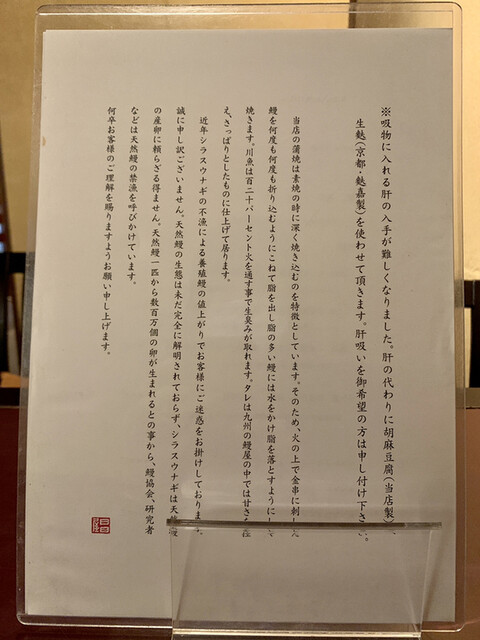 ※吸物に入れる肝の入手が難しくなりました。肝の代わりに胡麻豆腐(当店製)、
生麩(京都・麩嘉製)を使わせて頂きます。肝吸いを御希望の方は申し付け下さい。
当店の蒲焼は素焼の時に深く焼き込むのを特徴としています。そのため、火の上で金串に刺した
鰻を何度も何度も折り込むようにこねて脂を出し脂の多い鰻には水をかけ脂を落とすようにして
焼きます。川魚は百二十パーセント火を通す事で生臭みが取れます。タレは九州の鰻屋の中では甘さを控
え、さっぱりとしたものに仕上げて居ります。
近年シラスウナギの不漁による養殖鰻の値上がりでお客様にご迷惑をお掛けしております。
誠に申し訳ございません。天然鰻の生態は未だ完全に解明されておらず、シラスウナギは天然鰻
の産卵に頼らざる得ません。天然鰻一匹から数百万個の卵が生まれるとの事から、鰻協会、研究者
などは天然鰻の禁漁を呼びかけています。
何卒お客様のご理解を賜りますようお願い申し上げます。